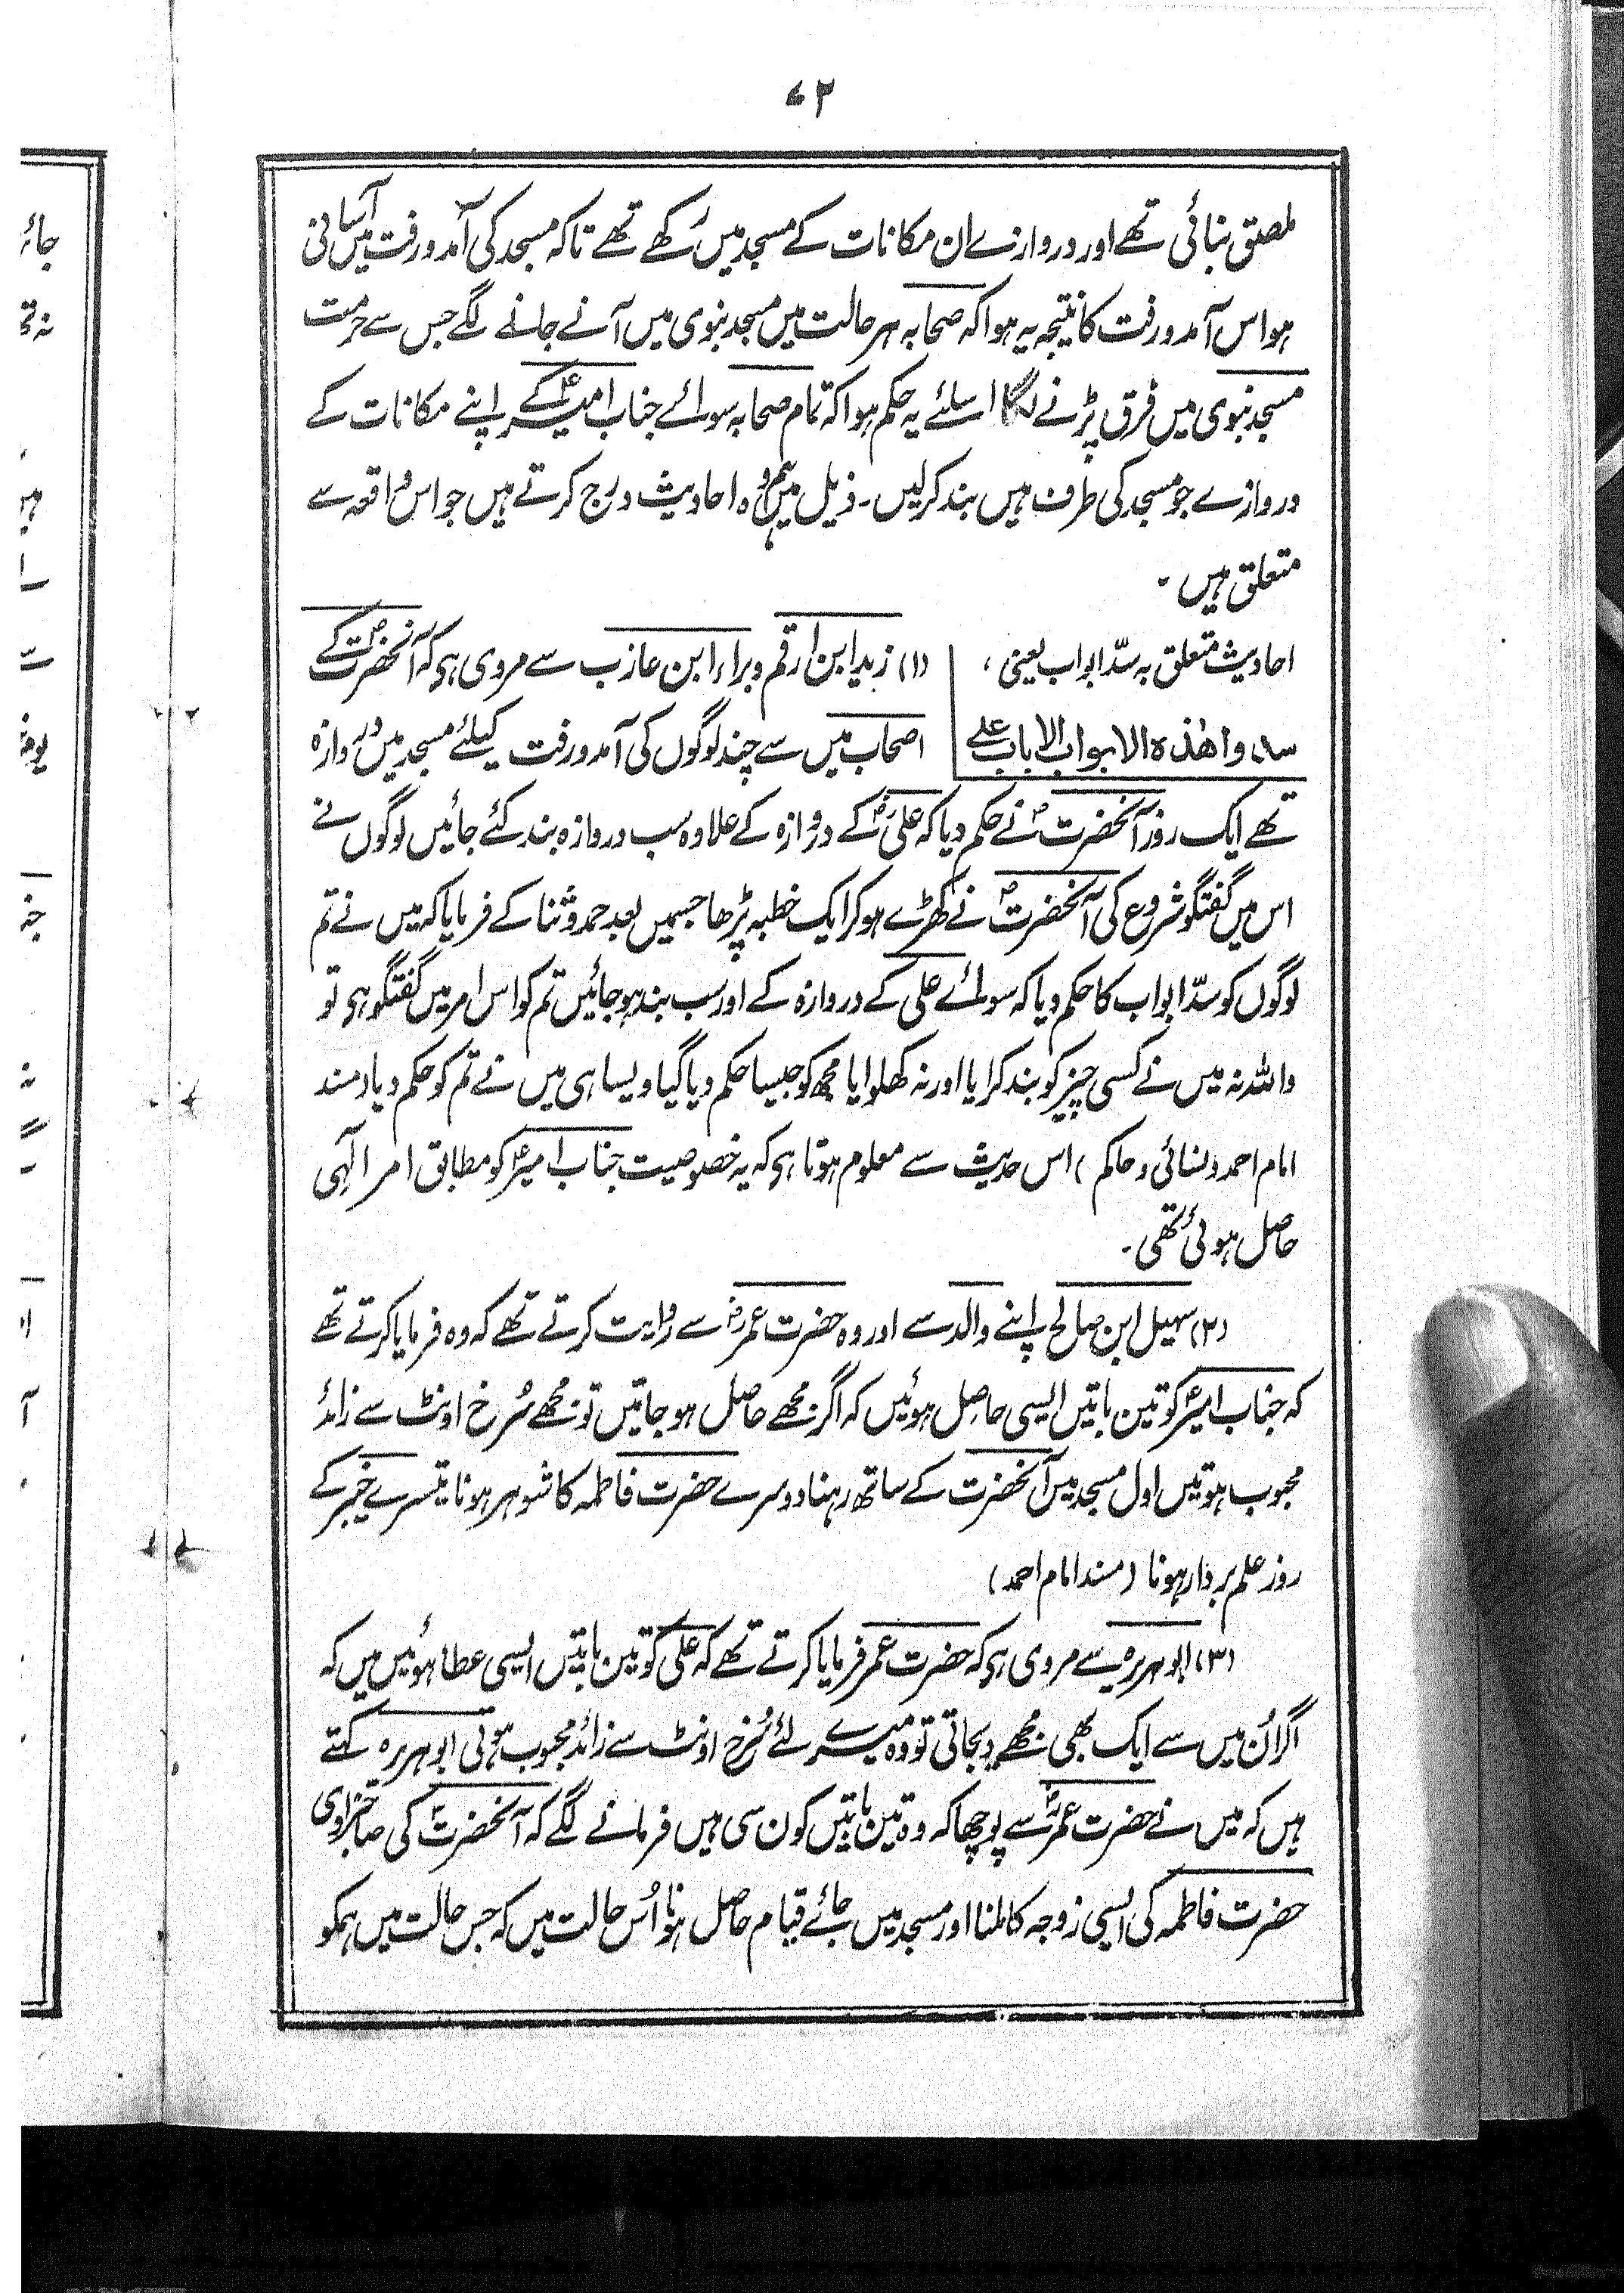 ۷۲
ملصق بنائی تھے اور دروازے ان مکانات کے مسجد میں رکھے تھے تاکہ مسجد کی آمد ورفت میں آسانی
ہو اس آمد ورفت کا نتیجہ یہ ہوا کہ صحابہ ہر حالت میں مسجد نبوی میں آنے جانے لگے جس سے حرمت
مسجد نبوی میں فرق پڑنے لگا اسلئے یہ حکم ہوا کہ تمام صحابہ سوائے جناب امیرؑ کے اپنے مکانات کے
دروازے جو مسجد کی طرف ہیں بند کرلیں۔ ذیل میں ہم وہ احادیث درج کرتے ہیں جو اس واقعہ سے
متعلق ہیں۔
احادیث متعلق بہ سدّ ابواب یعنی،
سدوا ھٰذہ الابواب الا باب علے
(۱) زید ابن ارقم و براء ابن عازب سے مروی ہی کہ آنحضرتؐ کے
اصحاب میں سے چند لوگوں کی آمد ورفت کیلئے مسجد میں دروازہ
تھے ایک روز آنحضرتؐ نے حکم دیا کہ علیؓ کے دروازہ کے علاوہ سب دروازہ بند کئے جائیں لوگوں نے
اس میں گفتگو شروع کی آنحضرتؐ نے کھڑے ہو کر ایک خطبہ پڑھا جسمیں بعد حمد وثنا کے فرمایا کہ میں نے تم
لوگوں کو سدّ ابواب کا حکم دیا کہ سوائے علی کے دروازہ کے اور سب بند ہو جائیں تم کو اس امر میں گفتگو ہی تو
واللہ نہ میں نے کسی چیز کو بند کرایا اور نہ کھلوایا مجھ کو جیسا حکم دیا گیا ویسا ہی میں نے تم کو حکم دیا (مسند
امام احمد ونسائی وحاکم) اس حدیث سے معلوم ہوتا ہی کہ یہ خصوصیت جناب امیرؑ کو مطابق امر الٰہی
حاصل ہوئی تھی۔
(۲) سہیل ابن صالح اپنے والد سے اور وہ حضرت عمرؓ سے روایت کرتے تھے کہ وہ فرمایا کرتے تھے
کہ جناب امیرؑ کو تین باتیں ایسی حاصل ہوئیں کہ اگر مجھے حاصل ہو جاتیں تو مجھے سُرخ اونٹ سے زائد
محبوب ہوتیں اول مسجد میں آنحضرت کے ساتھ رہنا دوسرے حضرت فاطمہ کا شوہر ہونا تیسرے خیبر کے
روز علم بردار ہونا (مسند امام احمد)
(۳) ابو ہریرہ سے مروی ہی کہ حضرت عمر فرمایا کرتے تھے کہ علی کو تین باتیں ایسی عطا ہوئیں میں کہ
اگر اُن میں سے ایک بھی مجھے دیجاتی تو وہ میرے لئے سُرخ اونٹ سے زائد محبوب ہوتی ابو ہریرہ کہتے
ہیں کہ میں نے حضرت عمرؓ سے پوچھا کہ وہ تین باتیں کون سی ہیں فرمانے لگے کہ آنحضرتؐ کی صاحبزادی
حضرت فاطمہ کی ایسی زوجہ کا ملنا اور مسجد میں جائے قیام حاصل ہونا اُس حالت میں کہ جس حالت میں ہمکو